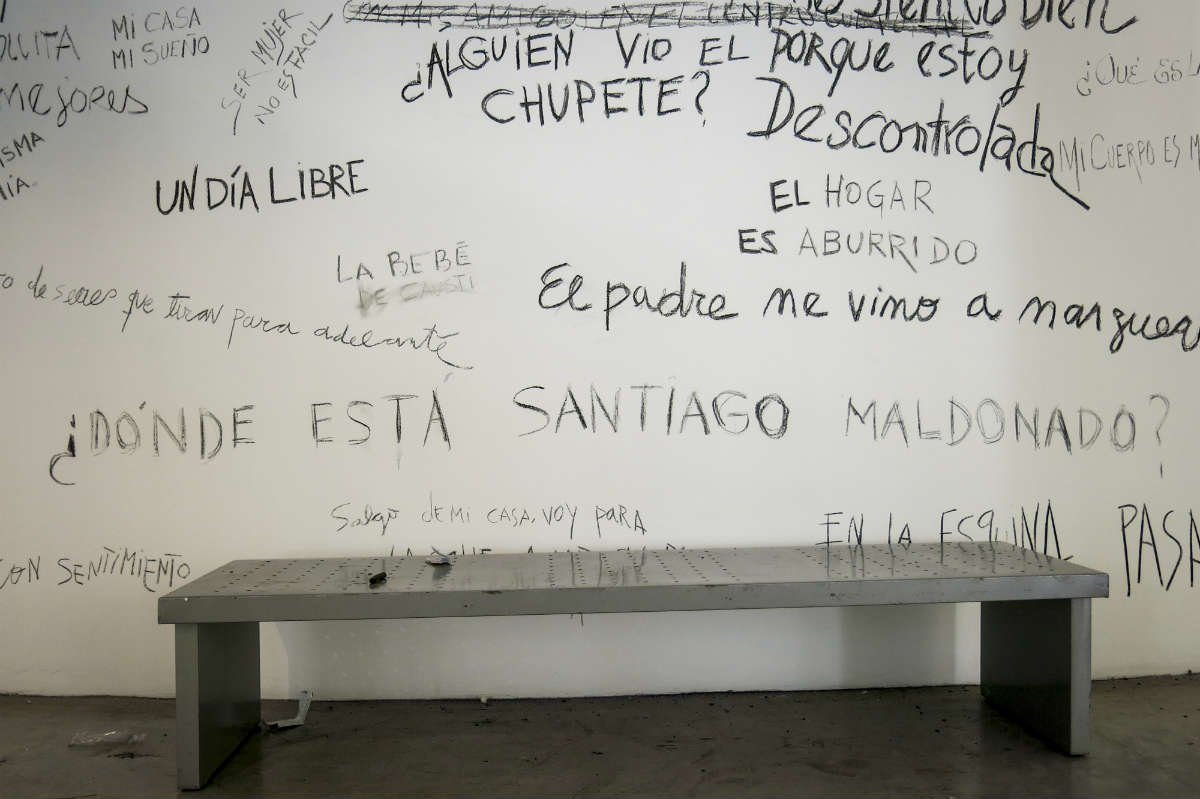 MI CASA
MI SUEÑO
SER MUJER
NO ES FÁCIL
Mejores
¿ALGUIEN VIO EL
CHUPETE?
bien
PORQUE estoy
Descontrolada
¿QUÉ ES LA
MI CUERPO ES M
UN DÍA LIBRE
EL HOGAR
ES ABURRIDO
LA BEBÉ
DE CAUSTI
de seres que tiran para adelante
El padre me vino a
¿DÓNDE ESTÁ SANTIAGO MALDONADO?
Salgo de MI CASA, VOY PARA
EN LA ESQUINA
PASA
CON SENTIMIENTO